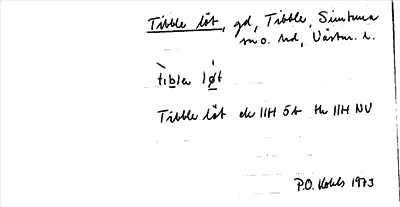 Tibble låt, gd, Tibble, Simtuna
sn o. hd, Västm. l.
tɩblɐ løt
Tibble låt ek 11H 5t tk 11H NV
P.O. Kohls 1973